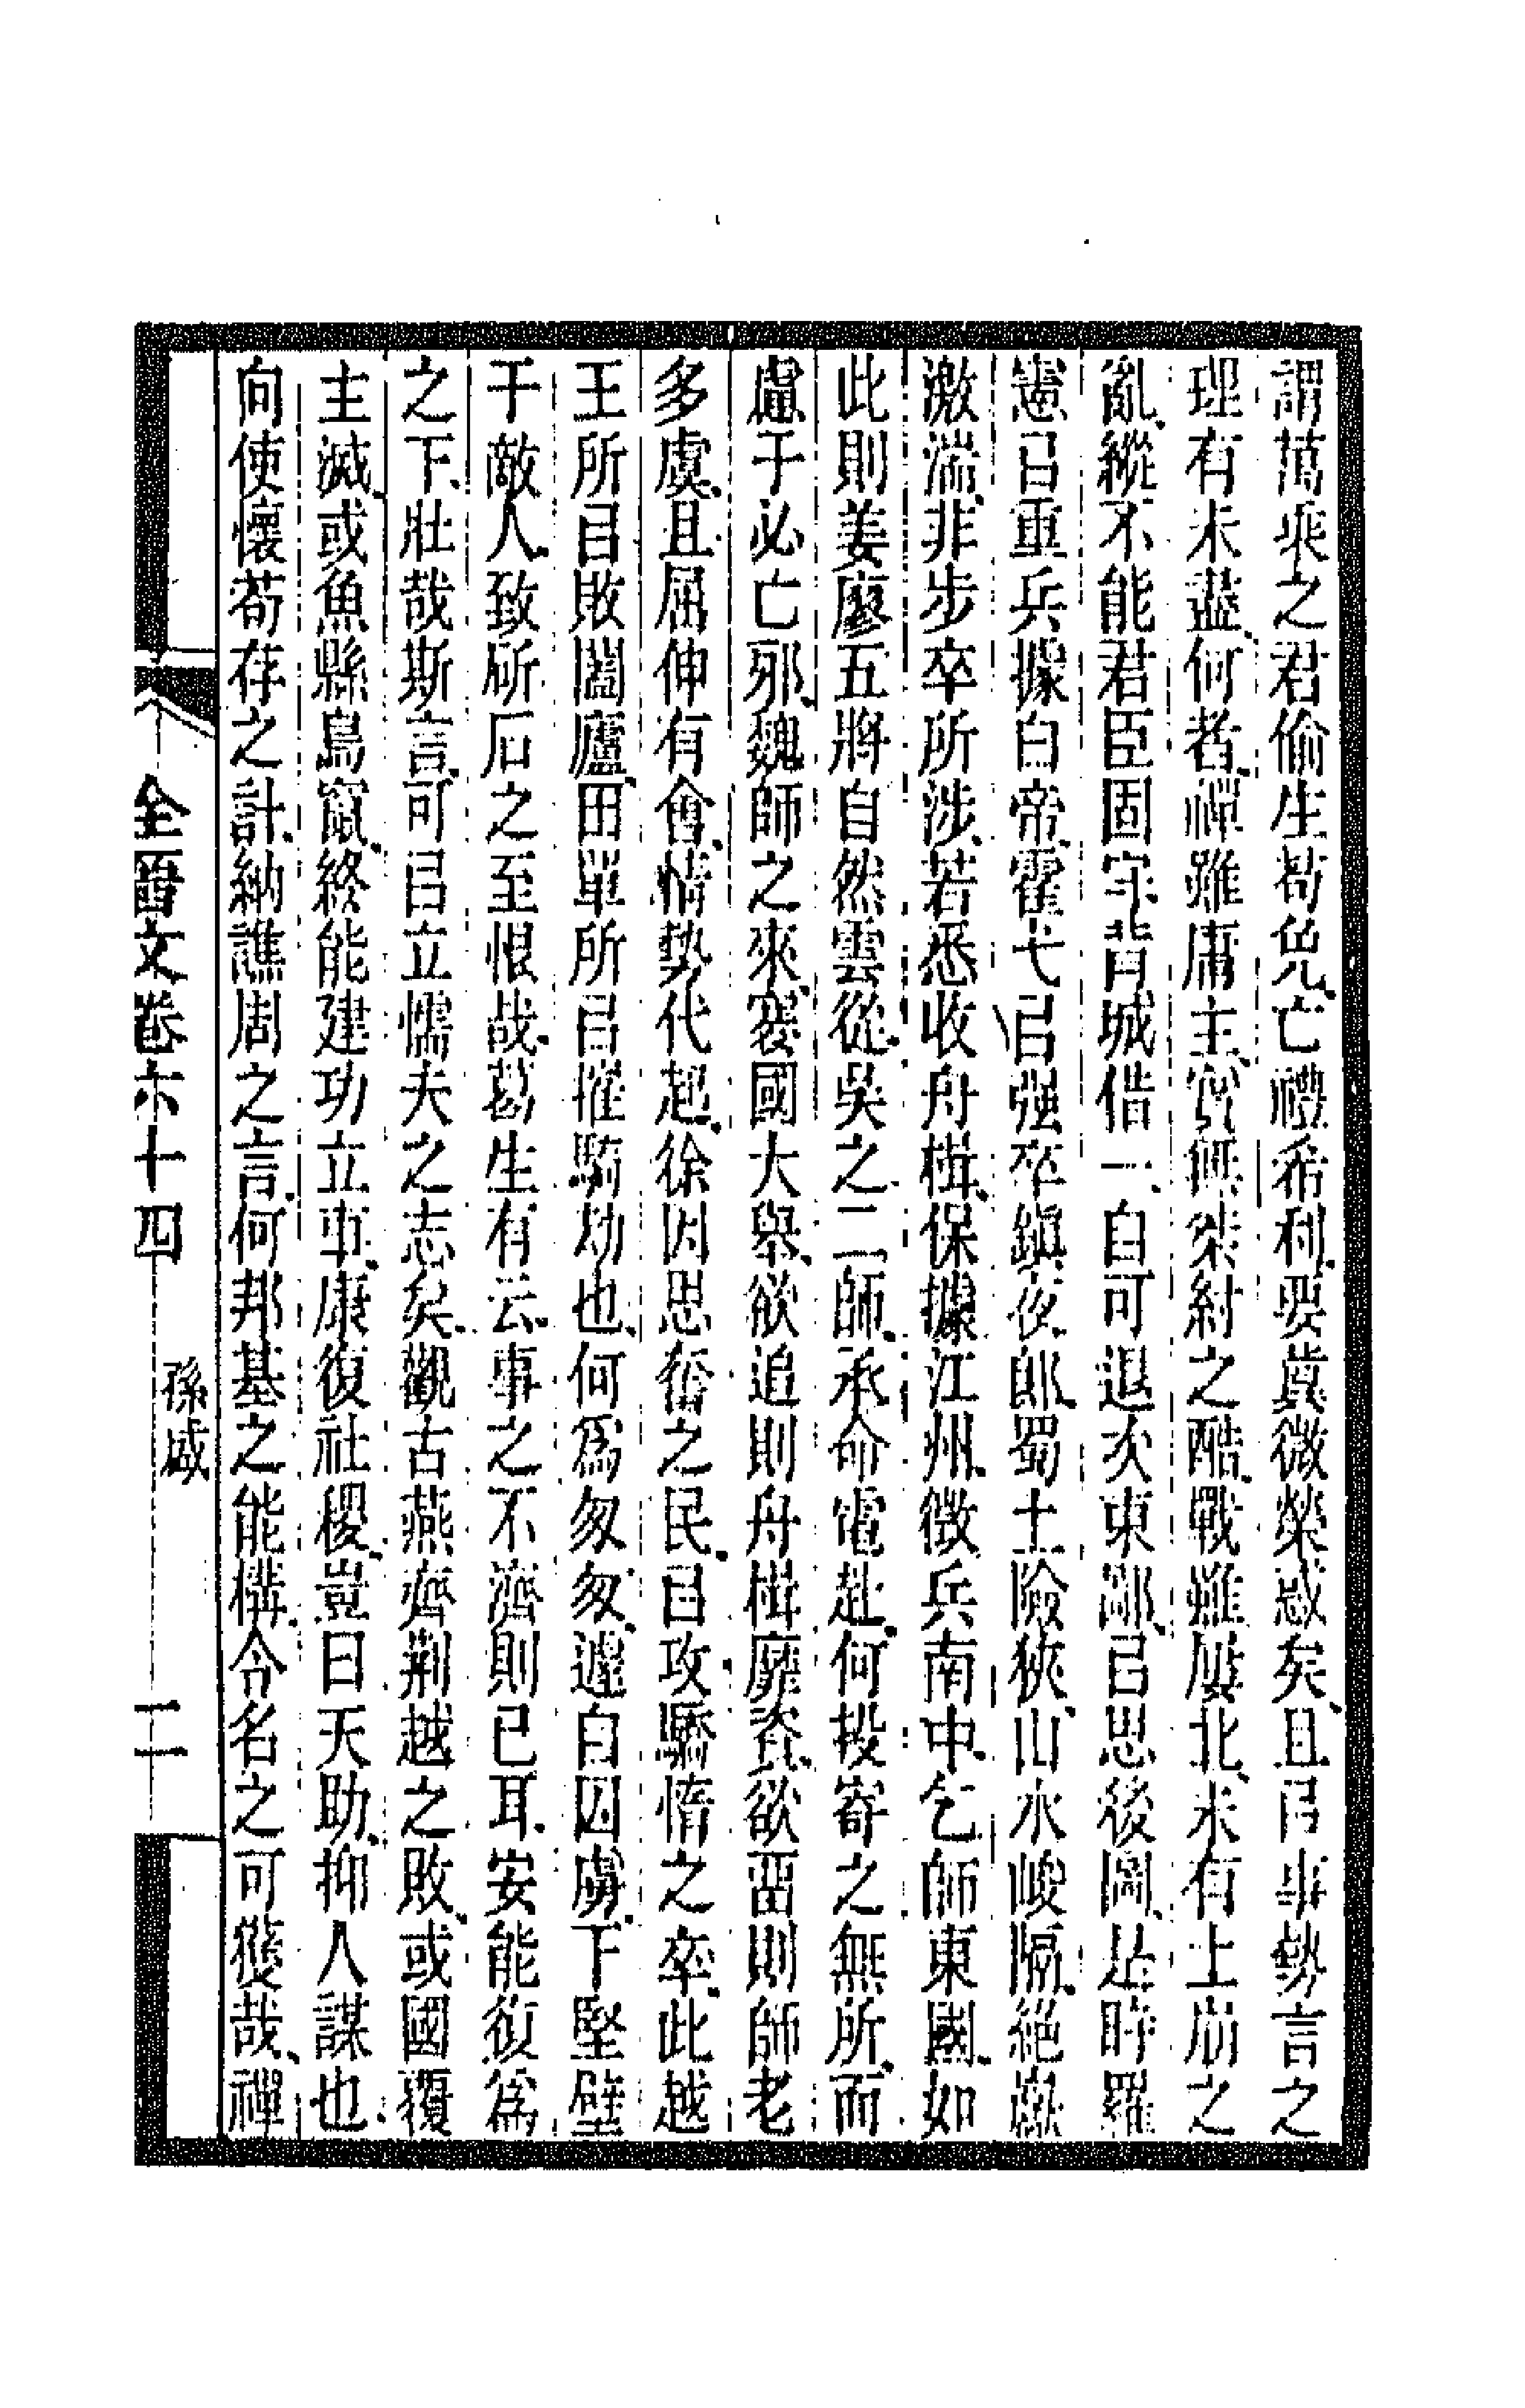 謂萬乘之君偷生苟免、亡禮希利、要冀微榮、惑矣、且㠯事勢言之
理有未盡、何者、禪雖庸主、實無桀紂之酷、戰雖屢北、未有土崩之
亂、縱不能君臣固守、背城借一、自可退次東鄙、㠯思後圖、是時羅
憲㠯重兵據白帝、霍弋㠯强卒鎮夜郎、蜀土險狹、山水峻隔、絕巘
激湍、非步卒所涉、若悉收舟楫、保據江州、徵兵南中、乞師東國、如
此則姜廖五將自然雲從、吳之二師、承命電赴、何投寄之無所、而
慮于必亡邪、魏師之來、褰國大舉、欲追則舟楫靡資、欲畱則師老
多虞、且屈伸有會、情勢代起、徐因思奮之民、㠯攻驕惰之卒、此越
王所㠯敗闔廬、田單所㠯摧騎劫也、何爲匆匆、遑自囚虜、下堅壁
于敵人、致斫石之至恨哉、葛生有云、事之不濟則已耳、安能復爲
之下、壯哉斯言、可㠯立懦夫之志矣、觀古燕齊荆越之敗、或國覆
主滅、或魚縣鳥竄、終能建功立事、康復社稷、豈曰天助、抑人謀也、
向使懷苟存之計、納譙周之言、何邦基之能構、令名之可獲哉、禪
全晉文卷六十四 孫盛 二